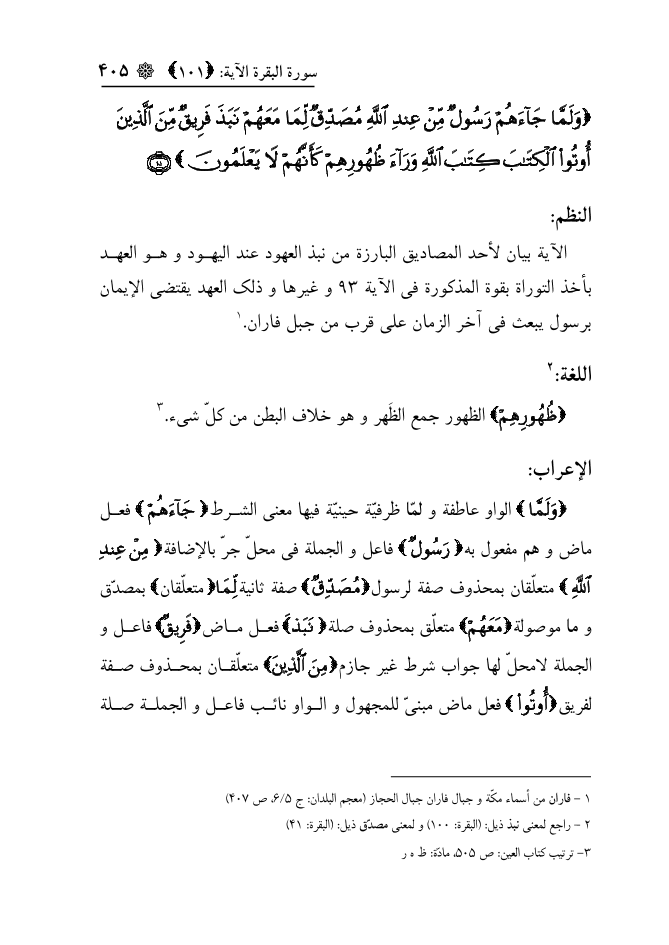 سورة البقرة الآية: ﴿١٠١﴾ ۴۰۵
﴿وَلَمَّا جَآءَهُمْ رَسُولٌ مِّنْ عِندِ ٱللَّهِ مُصَدِّقٌ لِّمَا مَعَهُمْ نَبَذَ فَرِيقٌ مِّنَ ٱلَّذِينَ
أُوتُوا۟ ٱلْكِتَـٰبَ كِتَـٰبَ ٱللَّهِ وَرَآءَ ظُهُورِهِمْ كَأَنَّهُمْ لَا يَعْلَمُونَ﴾
النظم:
الآیة بیان لأحد المصادیق البارزة من نبذ العهود عند الیهـود و هـو العهـد
بأخذ التوراة بقوة المذکورة فی الآیة ۹۳ و غیرها و ذلک العهد یقتضی الإیمان
برسول یبعث فی آخر الزمان علی قرب من جبل فاران.۱
اللغة:۲
﴿ظُهُورِهِمْ﴾ الظهور جمع الظَهر و هو خلاف البطن من کلّ شیء.۳
الإعراب:
﴿وَلَمَّا﴾ الواو عاطفة و لمّا ظرفیّة حینیّة فیها معنی الشـرط﴿جَآءَهُمْ﴾ فعـل
ماض و هم مفعول به﴿رَسُولٌ﴾ فاعل و الجملة فی محلّ جرّ بالإضافة﴿مِّنْ عِندِ
ٱللَّهِ﴾ متعلّقان بمحذوف صفة لرسول﴿مُصَدِّقٌ﴾ صفة ثانیة﴿لِّمَا﴾متعلقان﴾ بمصدّق
و ما موصولة﴿مَعَهُمْ﴾ متعلّق بمحذوف صلة﴿نَبَذَ﴾ فعـل مـاض﴿فَرِيقٌ﴾ فاعـل و
الجملة لامحلّ لها جواب شرط غیر جازم﴿مِنَ ٱلَّذِينَ﴾ متعلّقـان بمحـذوف صـفة
لفریق﴿أُوتُوا۟﴾ فعل ماض مبنیّ للمجهول و الـواو نائـب فاعـل و الجملـة صـلة
۱ – فاران من أسماء مکّة و جبال فاران جبال الحجاز (معجم البلدان: ج ۶/۵، ص ۴۰۷)
۲ – راجع لمعنی نبذ ذیل: (البقرة: ۱۰۰) و لمعنی مصدّق ذیل: (البقرة: ۴۱)
۳– ترتیب کتاب العین: ص ۵۰۵، مادّة: ظ ه ر